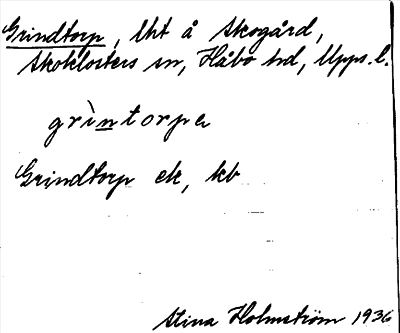 Grindtorp, lht å Skogård,
Skoklosters sn, Håbo hd, Upps. l.
grìntorpa
Grindtorp ek, kb
Stina Holmström 1936